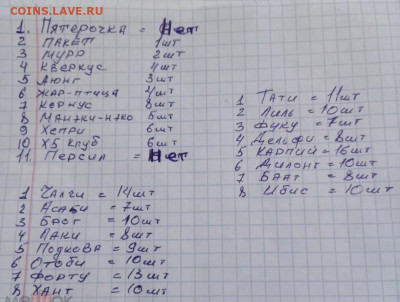 COINS.LAVE.RU
1. Пятерочка = Нет
2 ПАКЕТ 1шт
3 МУРР 2шт
4 КВЕРКУС 4шт
5 Люнг 3шт
6 ЖАР-птица 4шт
7 Корнус 8шт
8 6шт
9 Хепри 6шт
10 Х5 клуб 6шт
11. Персил = Нет
1 Чалги = 14шт
2 Асаби = 7шт
3 Баст = 10шт
4 Лаки = 8шт
5 Подкова = 9шт
6 Отоби = 10шт
7 Форту = 13шт
8 Хант = 10шт
1 Тати = 11шт
2 Лиль = 10шт
3 Фуку = 7шт
4 Дельфи = 8шт
5 КАРПИЙ = 16шт
6 Дилонг = 10шт
7 Баат = 8шт
8 Ибис = 10шт